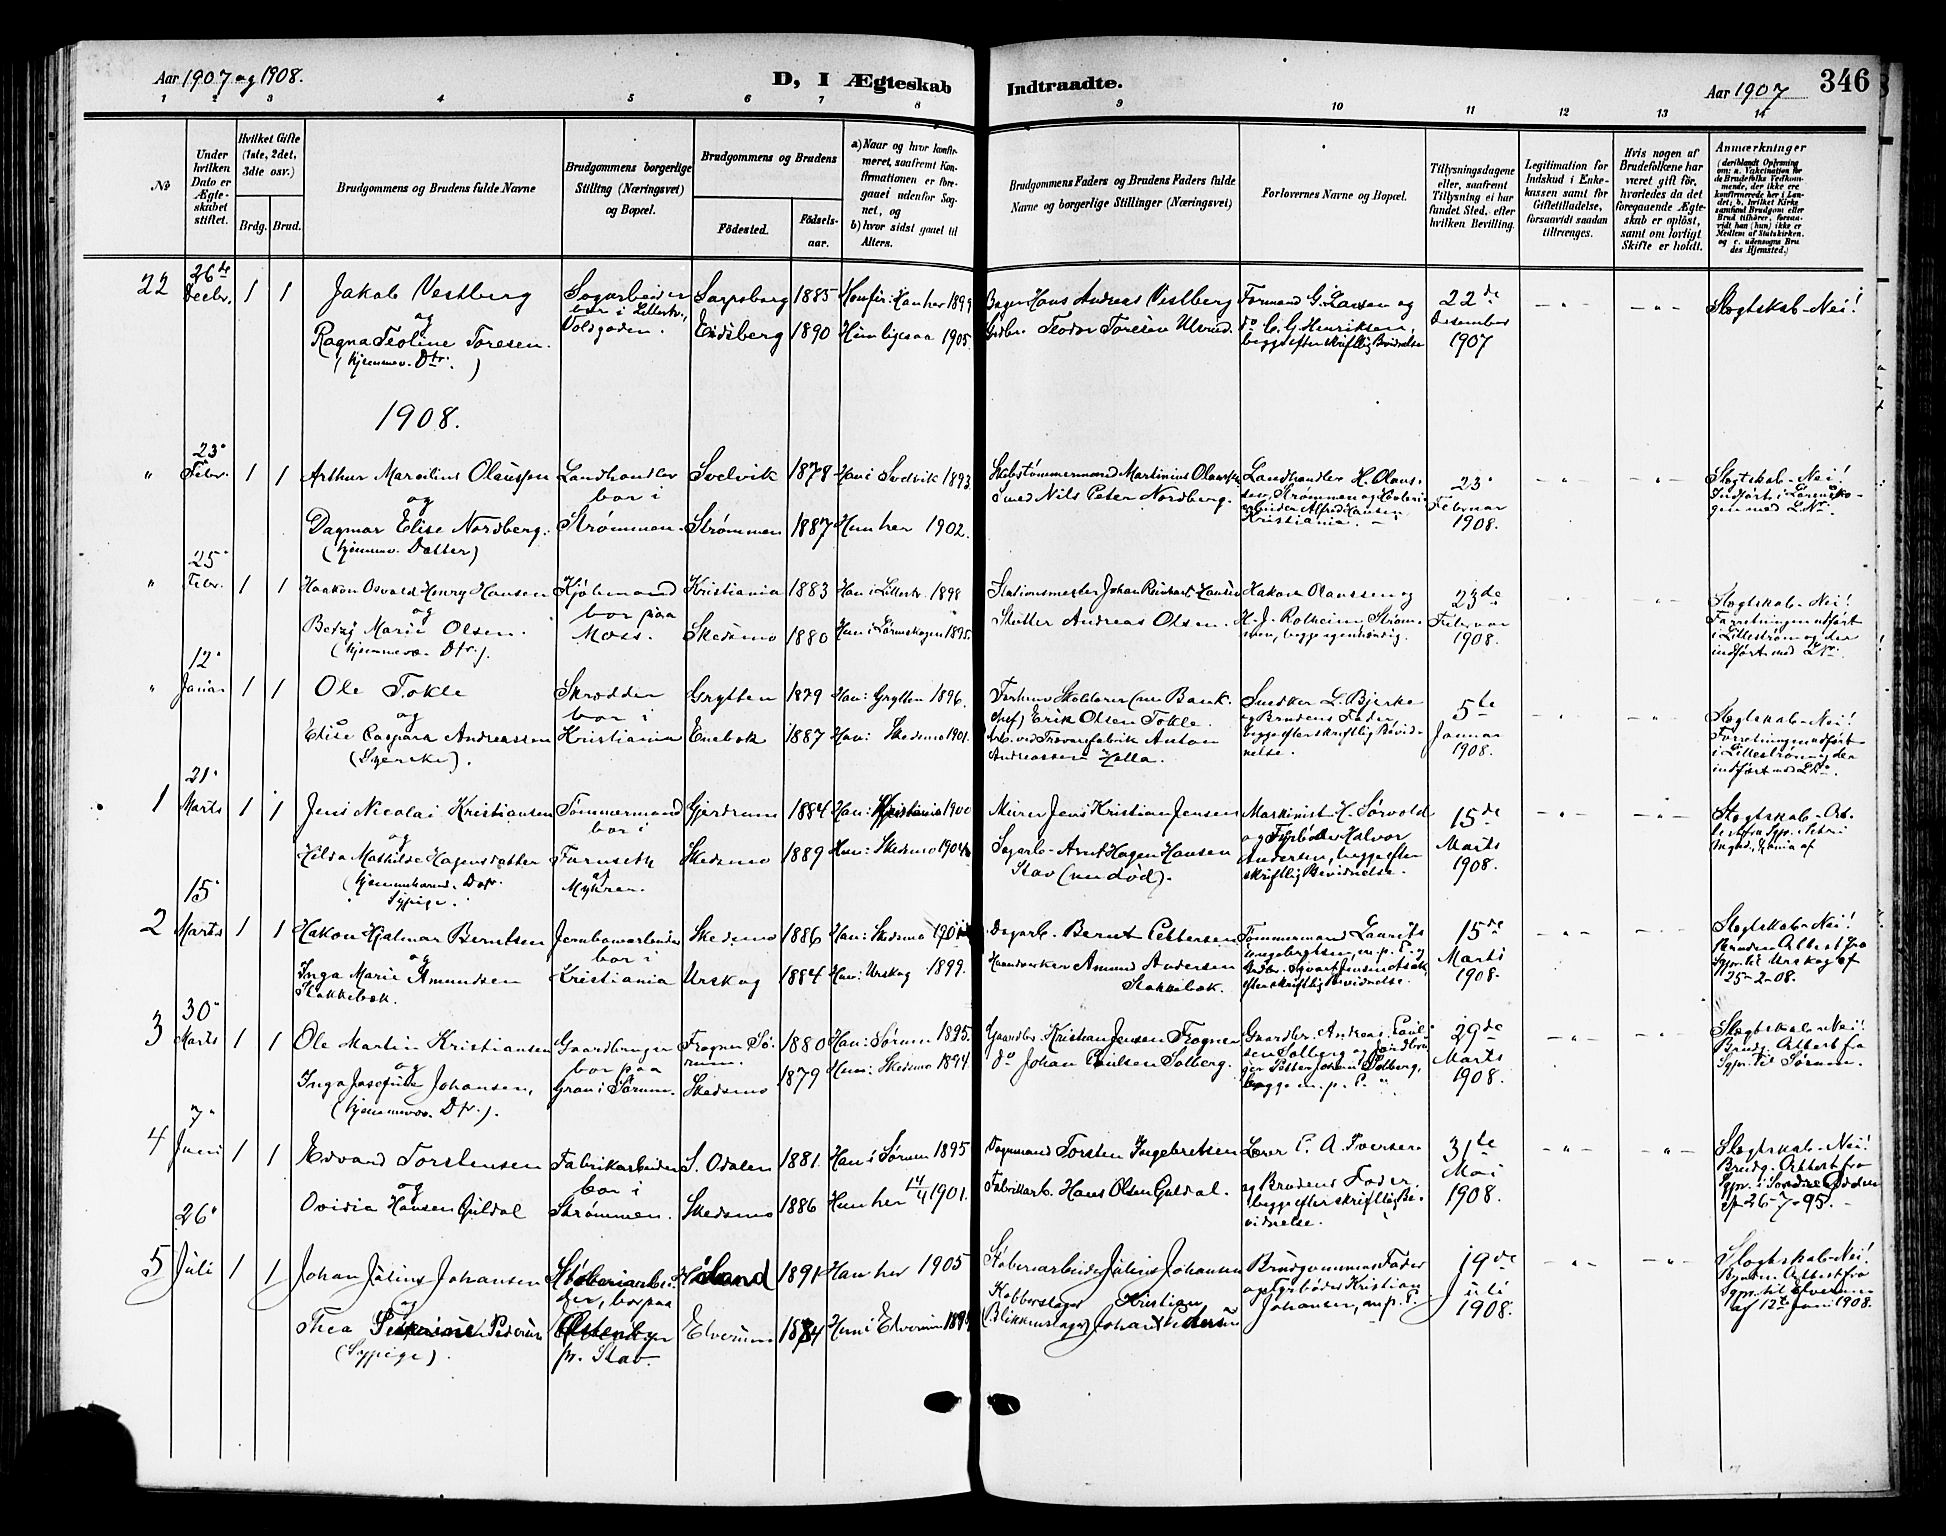 Aar 1907 og 1908.
D, I Ægteskab Indtraadte.
Aar 1907
346
1 2 3 4 5 6 7 8 9 10 11 12 13 14
No
Under hvilken Dato er Ægteskabet stiftet.
Hvilket Gifte (1ste, 2det, 3dte osv.)
Brdg. Brud.
Brudgommens og Brudens fulde Navne
Brudgommens borgerlige Stilling (Næringsvei) og Bopæl.
Brudgommens og Brudens
Födested.
Födselsaar.
a) Naar og hvor konfirmeret, saafremt Konfirmationen er foregaaet udenfor Sognet, og
b) hvor sidst gaaet til Alters.
Brudgommens Faders og Brudens Faders fulde Navne og borgerlige Stillinger (Næringsvei)
Forlovernes Navne og Bopæl.
Tillysningsdagene eller, saafremt Tillysning ei har fundet Sted, efter hvilken Bevilling.
Legitimation for Indskud i Enkekassen samt for Giftetilladelse, forsaavidt saadan tiltrænges.
Hvis nogen af Brudefolkene har været gift för, hvorledes da det foregaaende Ægteskab er oplöst, samt om lovligt Skifte er holdt.
Anmærkninger
(deriblandt Oplysning om: a. Vaccination for de Brudefolks Vedkommende, der ikke ere konfirmerede her i Landet; b. hvilket Kirkesamfund Brudgom eller Brud tilhører, forsaavidt han (hun) ikke er Medlem af Statskirken. og c. udensogns Brudes Hjemsted.)
22 26de Decbr. 1 1
Jakob Vestberg
og
Ragna Teoline Toresen.
(hjemmev. Dtr.)
Sagarbeider
bor i Lillestr.,
Voldgaden.
Sarpsborg 1885
Eidsberg 1890
Konfir: Han her 1899
Hun ligesaa 1905.
Bager Hans Andreas Vestberg
Grdbr. Teodor Toresen Ulvrud.
Formand G. Larsen og
do C. G. Henriksen,
begge efter skriftlig Bevidnelse
22de
Desember
1907
Slægtskab - Nei!
1908.
" 23' Febr. 1 1
Arthur Marcilius Olaussen
og
Dagmar Elise Nordberg.
(hjemmev. Datter)
Landhandler
bor i
Strømmen.
Svelvik 1878
Strømmen 1887
Han i Svelvik 1893.
Hun her 1902.
Skibstømmermand Martinius Olaussen
Smed Nils Peter Nordberg.
Landhandler H. Olaussen,
Strømmen og
Alfred Hansen
Kristiania.
23'
Februar
1908.
Slægtskab - Nei!
Indført i Lørenskogen med LNr.
" 25' Febr. 1 1
Haakon Osvald Henry Hansen
og
Betzy Marie Olsen.
(hjemmevæ. Dtr.).
Kjøbmand
bor paa
Moss.
Kristiania 1883
Skedsmo 1880
Han i Lillestr. 1898
Hun i Lørenskogen 1895.
Stationsmester Johan Reinhart Hansen
Skutter Andreas Olsen.
Hakon Olaussen og
H. J. Rolheim Strømmen, begge egenhændig.
23de
Februar
1908.
Slægtskab - Nei!
Forretningen udført
i Lillestrøm og der
indført med LNr.
" 12' Januar 1 1
Ole Tokle
og
Elise Caspara Andreassen
(Syerske).
Skrædder
bor i
Kristiania
Grytten 1879
Enebak 1887
Han: Grytten 1896.
Hun: Skedsmo 1901.
Forhenv. Skolelærer (nu Bankchef) Erik Olsen Tokle.
Arb. ved Trævarefabrik Anton
Andreassen Holla.
Snedker L. Bjerke
og Brudens Fader
begge efter skriftlig Bevidnelse.
5te
Januar
1908.
Slægtskab - Nei!
Forretningen udført
i Lillestrøm og der
indført med LNr.
1 21' Marts 1 1
Jens Nicolai Kristiansen
og
Hilda Mathilde Hagensdatter
(hjemmehørend. Datr.
Sypige.
Tømmermand
bor i
Farseth
af
Myhren.
Gjerdrum 1884
Skedsmo 1889
Han: Kristiania 1900
Hun: Skedsmo 1904.
Murer Jens Kristian Jensen
Sagarb. Arnt Hagen Hansen
Stav (nu død).
Maskinist H. Sørvold
og Fyrbøder Halvor
Andersen, begge efter
skriftlig Bevidnelse.
15de
Marts
1908.
2 15' Marts 1 1
Hakon Hjalmar Berntsen
og
Inga Marie Amundsen
Stokkebæk.
Jernbanearbeider
bor i
Kristiania
Skedsmo 1886
Urskog 1884
Han: Skedsmo 1901
Hun: Urskog 1899.
Dagarb. Bernt Pettersen
Haandverker Amund Andersen
Stokkebæk.
Tømmermand Laurits
Engebretsen, m.p.P. og
efter skriftlig Bevidnelse.
15de
Marts
1908.
Slægtskab - Nei!
Bruden Attest fra
Sgpr. til Urskog af
25-2-08.
3 30' Marts 1 1
Ole Martin Kristiansen
og
Inga Josefine Johansen,
(hjemmevæ. Dtr.).
Gaardbruger
bor paa
Gran i Sørum.
Frogner Sørum. 1880
Skedsmo 1879
Han: Sørum 1895.
Hun: Skedsmo 1894.
Gaardbr. Kristian Jensen Frogner
do Johan Paulsen Solberg.
Gaardbr. Andreas Paulsen Solberg og Gaardbruger Petter Johans. Solberg,
begge m.p.P. "
29de
Marts
1908.
Slægtskab - Nei!
Brudg. Attest fra
Sgpr. til Sørum.
4 7' Juni 1 1
Edvard Torstensen
og
Ovidia Hansen Guldal
Fabrikarbeider
bor i
Strømmen.
S. Odalen 1881.
Skedsmo 1886
Han i Sørum 1895
Hun her 14/4 1901.
Dagmand Torsten Ingebretsen
Fabrikarb. Hans Olsen Guldal.
Lærer C. A. Iversen
og Brudens Fader.
begge efter skriftlig Bevidnelse.
31te
Mai
1908.
Slægtskab - Nei!
Brudg. Attest fra
Sgpr. i Søndre Odalen
af 26-7-95.
5 26' Juli 1 1
Johan Julius Johansen
og
Thea Severine Pedersen
(Sypige).
Støberiarbeider, bor paa
Østenbyn
pr. Stav.
Høland 1891
Elverum 1884
Han her 1905
Hun i Elverum 1899
Støberiarbeider Julius Johansen
Kobberslager Kristian
(Blikkenslager) Johan Pedersen
Brudgommens Fader
og Fyrbøder Kristian
Johansen, m.p.P.
19de
Juli
1908.
Slægtskab - Nei!
Bruden: Attest fra
Sgpr. til Elverum
af 12te Juni 1908.